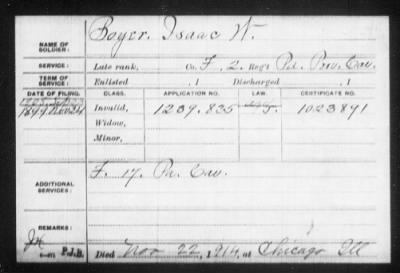 NAME OF SOLDIER: Boyer, Isaac W.
SERVICE: Late rank, Co. F, 2 Reg't Pa. Prov. Cav.
TERM OF SERVICE: Enlisted , 1 Discharged , 1
DATE OF FILING. CLASS. APPLICATION NO. LAW. CERTIFICATE NO.
1899 Nov 24 Invalid, 1239.835 1023891
Widow,
Minor,
ADDITIONAL SERVICES: F. 17. Pa. Cav.
REMARKS:
P.J.B. Died Nov 22, 1914, at Chicago Ill